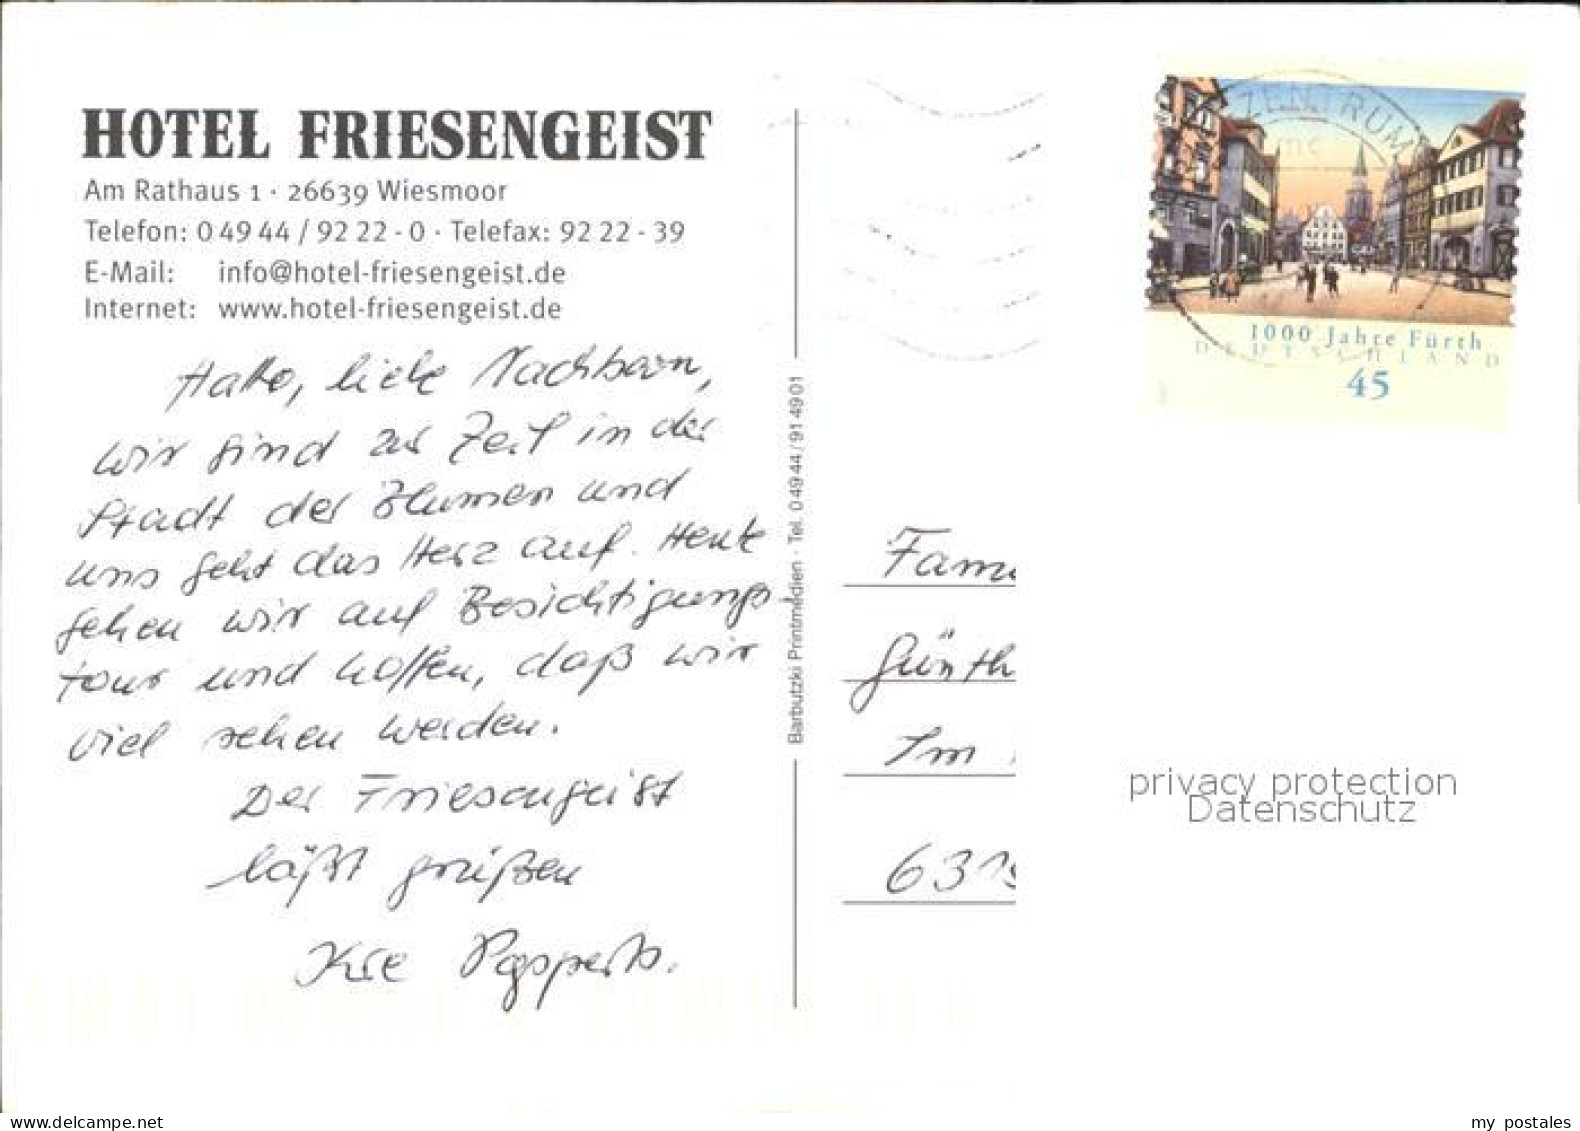 HOTEL FRIESENGEIST
Am Rathaus 1 · 26639 Wiesmoor
Telefon: 0 49 44 / 92 22 - 0 · Telefax: 92 22 - 39
E-Mail: info@hotel-friesengeist.de
Internet: www.hotel-friesengeist.de
Hallo, liebe Nachbarn,
wir sind zur Zeit in der
Stadt der Blumen und
uns geht das Herz auf. Heute
gehen wir auf Besichtigungs-
tour und hoffen, daß wir
viel sehen werden.
Der Friesengeist
läßt grüßen
Ihre Papperts.
Barbutzki Printmedien · Tel. 0 49 44 / 91 49 01
ZENTRUM
1000 Jahre Fürth
DEUTSCHLAND
45
Fami
Günth
Im
privacy protection
Datenschutz
my postales
www.delcampe.net